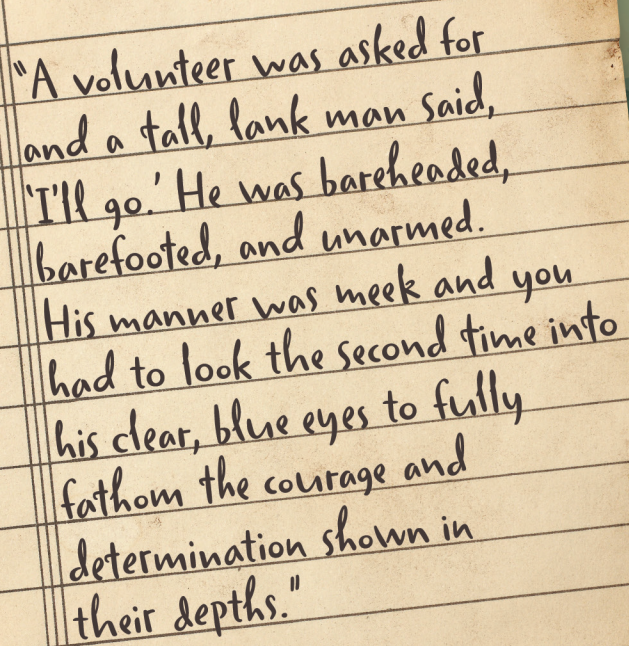 "A volunteer was asked for
and a tall, lank man said,
'I'll go.' He was bareheaded,
barefooted, and unarmed.
His manner was meek and you
had to look the second time into
his clear, blue eyes to fully
fathom the courage and
determination shown in
their depths."